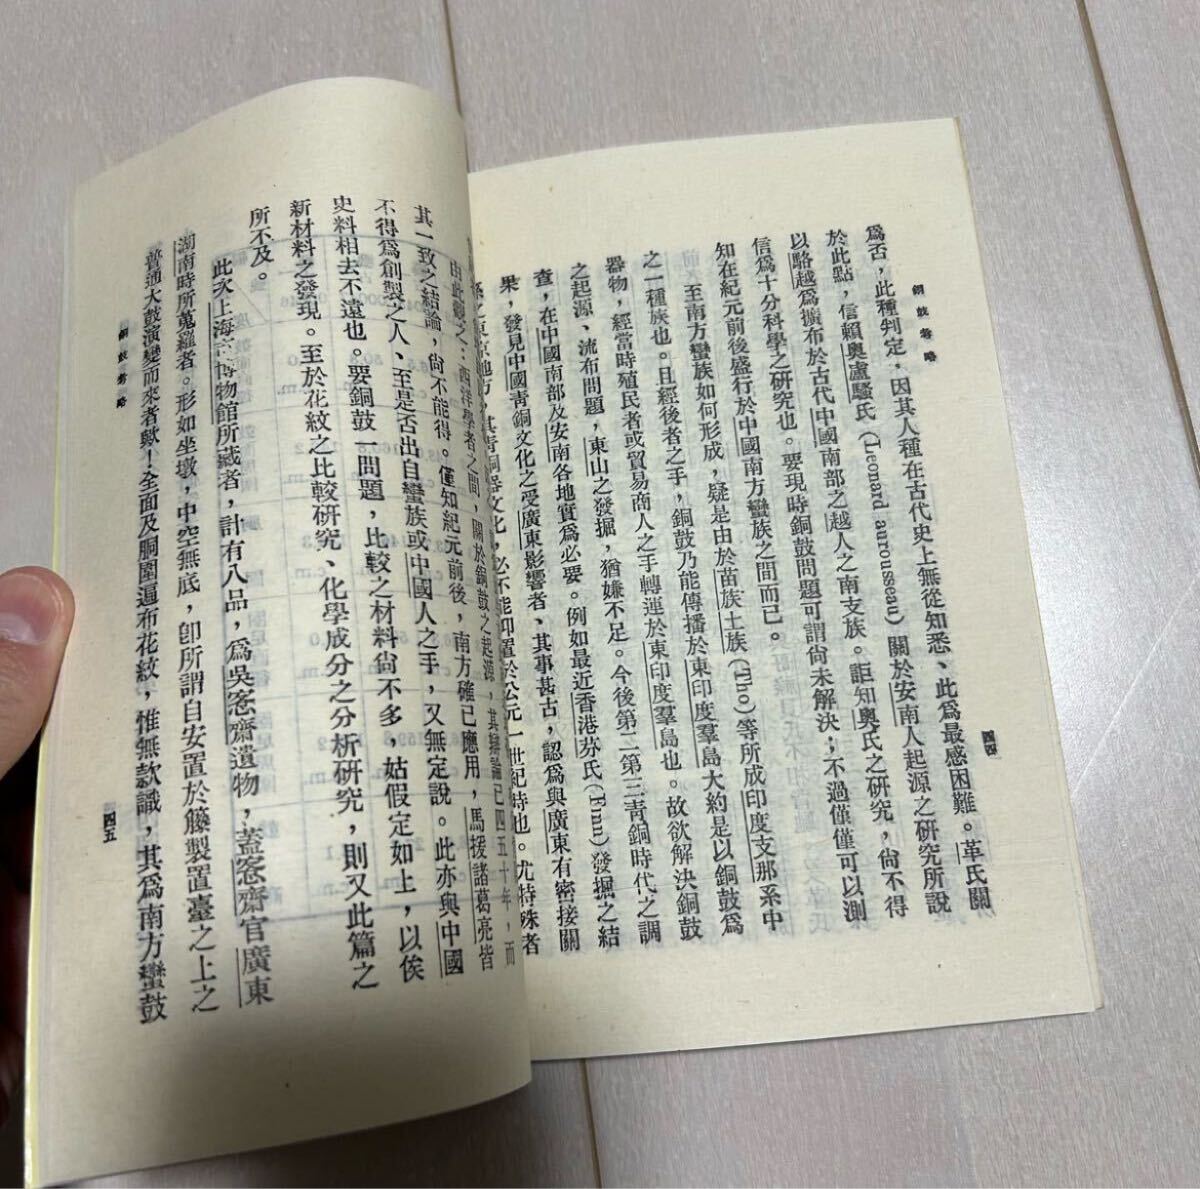 銅鼓考略
四四
為否，此種判定，因其人種在古代史上無從知悉、此為最感困難。革氏關
於此點，信賴奧盧騷氏(Leonard aurousseau)關於安南人起源之研究所說
以駱越為擴布於古代中國南部之越人之南支族。詎知奧氏之研究，尙不得
信為十分科學之研究也。要現時銅鼓問題可謂尙未解決；不過僅僅可以測
知在紀元前後盛行於中國南方蠻族之間而已。
至南方蠻族如何形成，疑是由於苗族土族(Tho)等所成印度支那系中
之一種族也。且經後者之手，銅鼓乃能傳播於東印度羣島大約是以銅鼓為
器物，經當時殖民者或貿易商人之手轉運於東印度羣島也。故欲解決銅鼓
之起源、流布問題，東山之發掘，猶嫌不足。今後第二第三青銅時代之調
查，在中國南部及安南各地實為必要。例如最近香港芬氏(Finn)發掘之結
果，發見中國青銅文化之受廣東影響者、其事甚古，認為與廣東有密接關
係之東京地方，其青銅器文化，必不能卽置於公元一世紀時也。尤特殊者
由此觀之：西洋學者之間，關於銅鼓之起源，其辯論已四五十年，而
其一致之結論，尙不能得。僅知紀元前後，南方確已應用，馬援諸葛亮皆
不得為創製之人、至是否出自蠻族或中國人之手，又無定說。此亦與中國
史料相去不遠也。要銅鼓一問題，比較之材料尙不多，姑假定如上，以俟
新材料之發現。至於花紋之比較研究、化學成分之分析研究，則又此篇之
所不及。
此次上海市博物館所藏者，計有八品，為吳愙齋遺物，蓋愙齋官廣東
湖南時所蒐羅者。形如坐墩，中空無底，卽所謂自安置於籐製置臺之上之
普通大鼓演變而來者歟！全面及胴圍遍布花紋，惟無款識，其為南方蠻鼓
銅鼓考略
四五